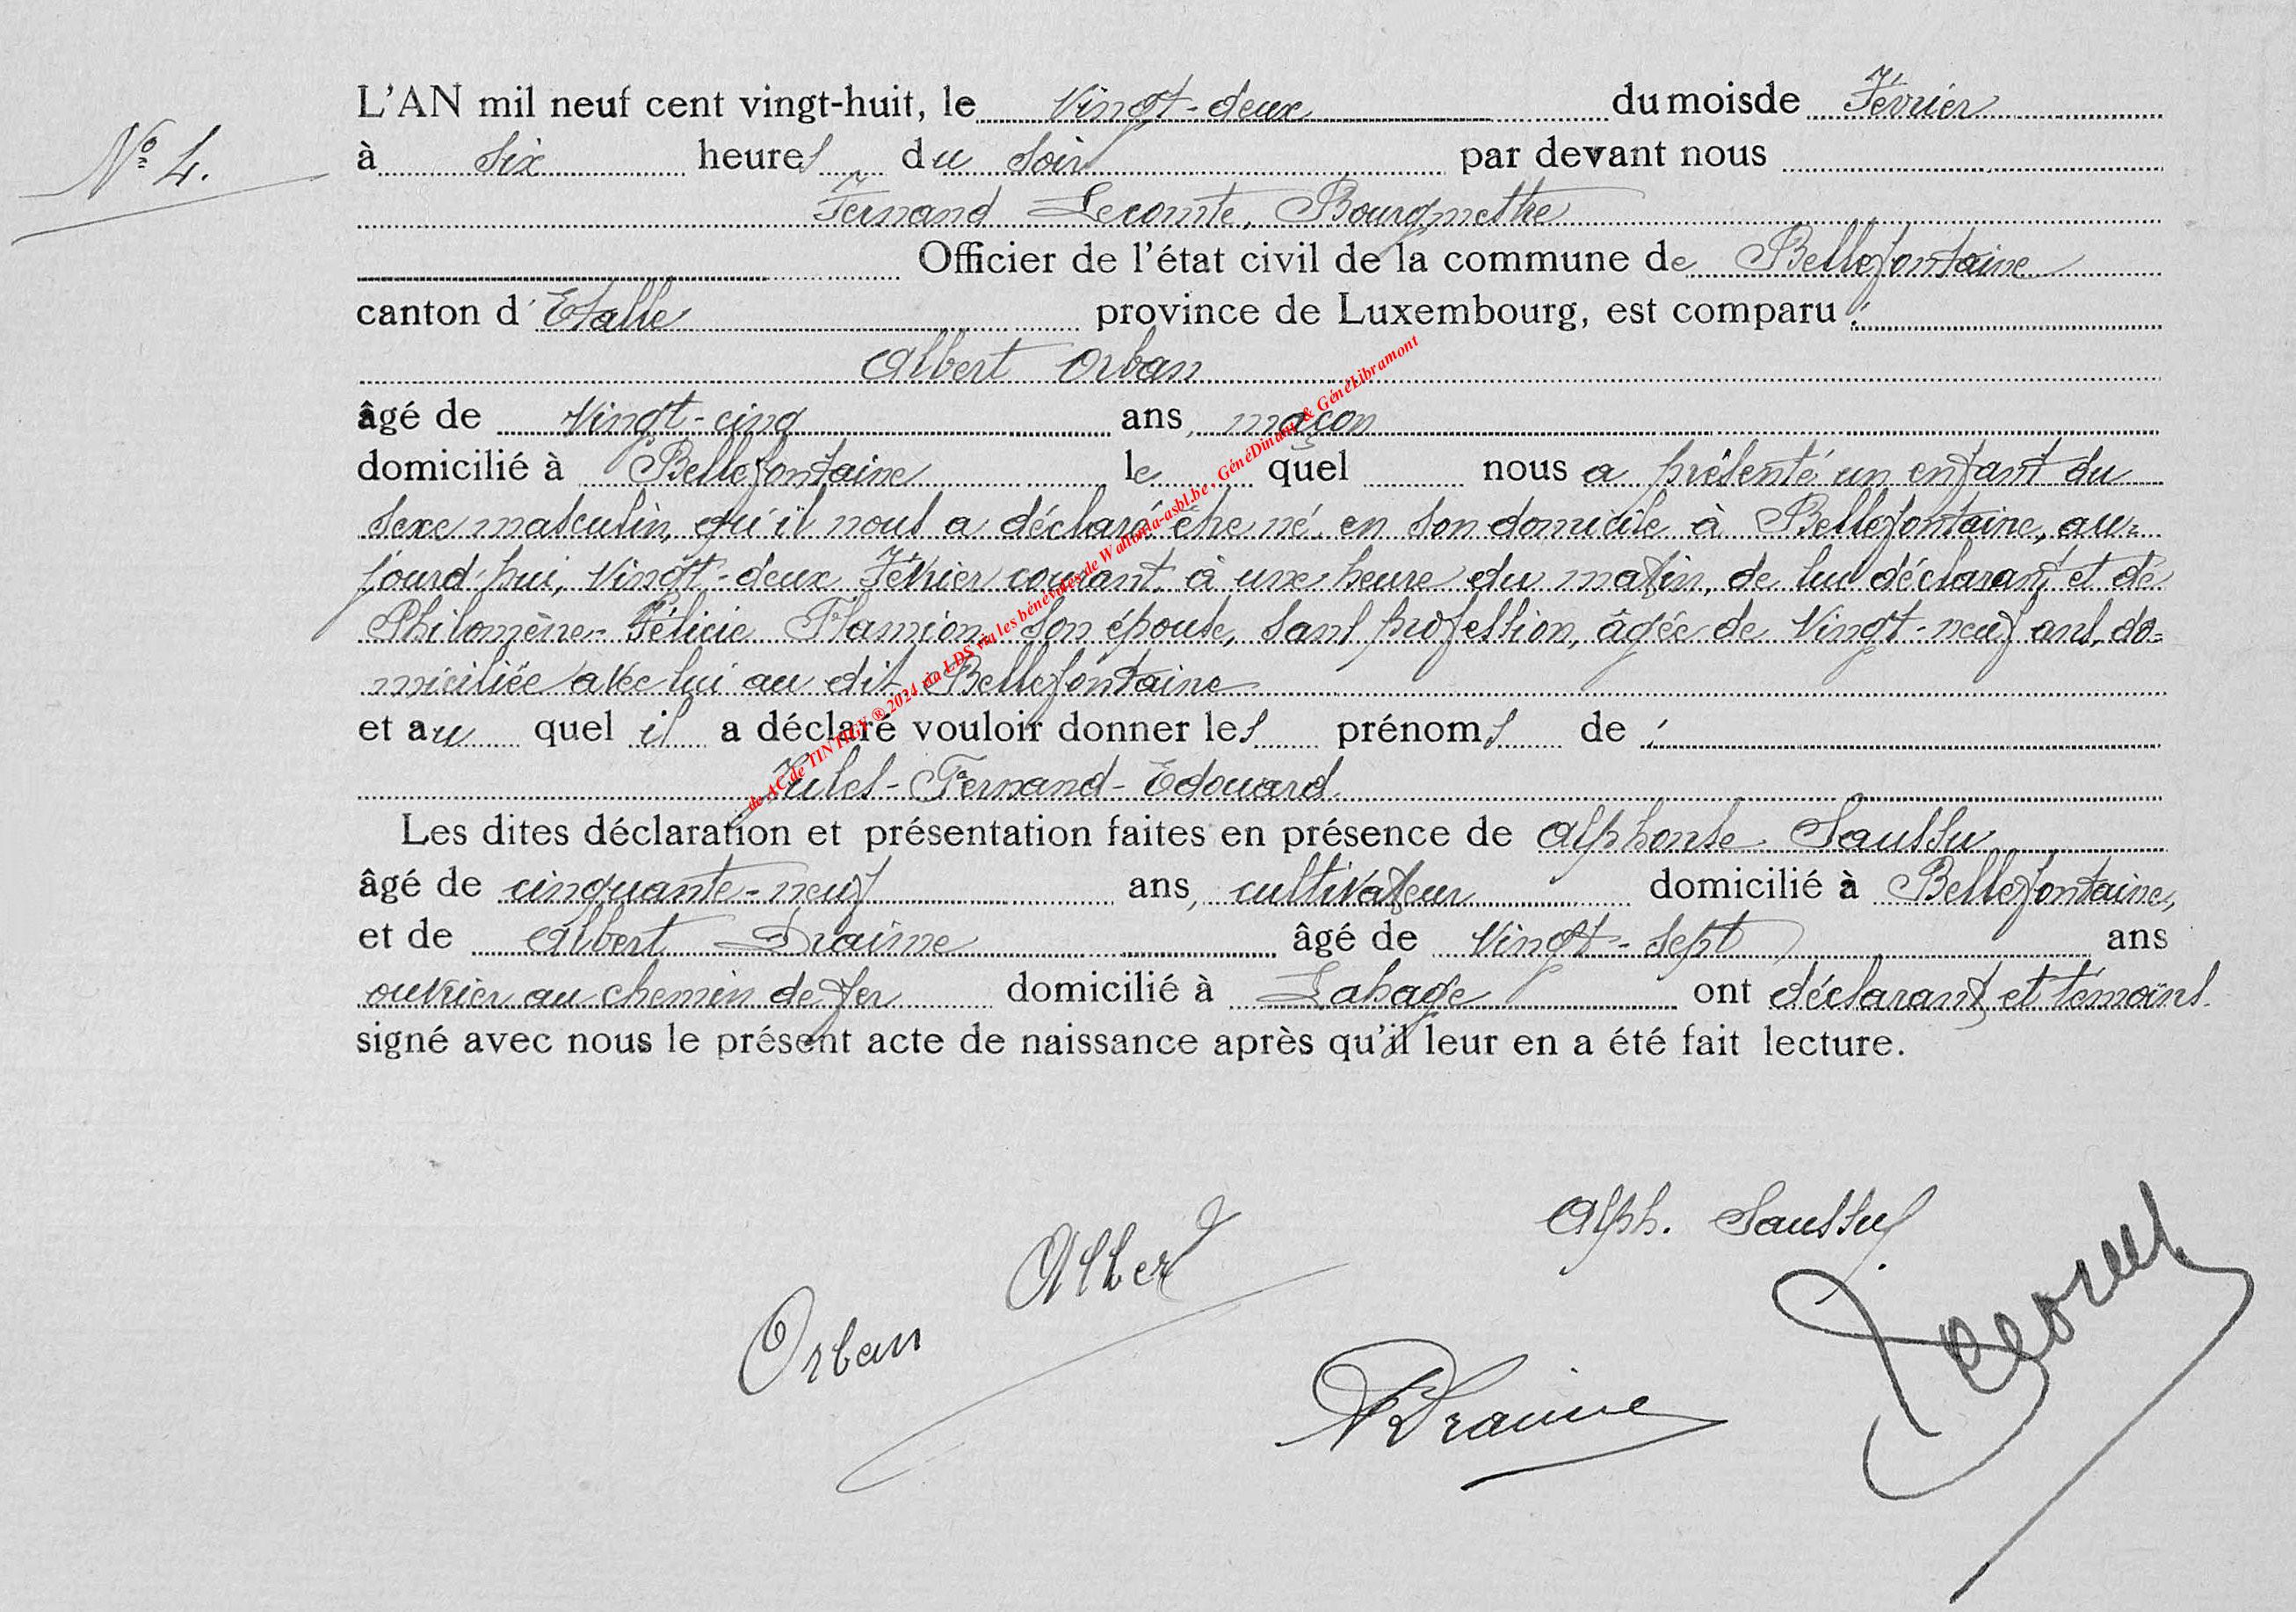 N° 4.
L'AN mil neuf cent vingt-huit, le Vingt-deux du mois de Février
à six heures du soir par devant nous
Fernand Lecomte, Bourgmestre
Officier de l'état civil de la commune de Bellefontaine
canton d'Etalle province de Luxembourg, est comparu :
Albert Orban
âgé de Vingt-cinq ans, maçon
domicilié à Bellefontaine le quel nous a présenté un enfant du
sexe masculin, qu'il nous a déclaré être né en son domicile à Bellefontaine, au=
jourd'hui, Vingt-deux Février courant, à une heure du matin, de lui déclarant et de
Philomène-Félicie Flamion, son épouse, sans profession, âgée de Vingt-neuf ans, do=
miciliée avec lui au dit Bellefontaine
et au quel il a déclaré vouloir donner les prénoms de :
Jules-Fernand-Edouard.
Les dites déclaration et présentation faites en présence de Alphonse Saussu
âgé de cinquante-neuf ans, cultivateur domicilié à Bellefontaine,
et de Albert Draime âgé de Vingt-sept ans
ouvrier au chemin de fer domicilié à Lahage ont déclarant et témoins
signé avec nous le présent acte de naissance après qu'il leur en a été fait lecture.
de AC de TINTIGY ® 2021 via LDS via les bénévoles de Wallonia-asbl.be, GénéDinant & GénéLibramont
Alph. Saussu
Orban Albert
ADraime